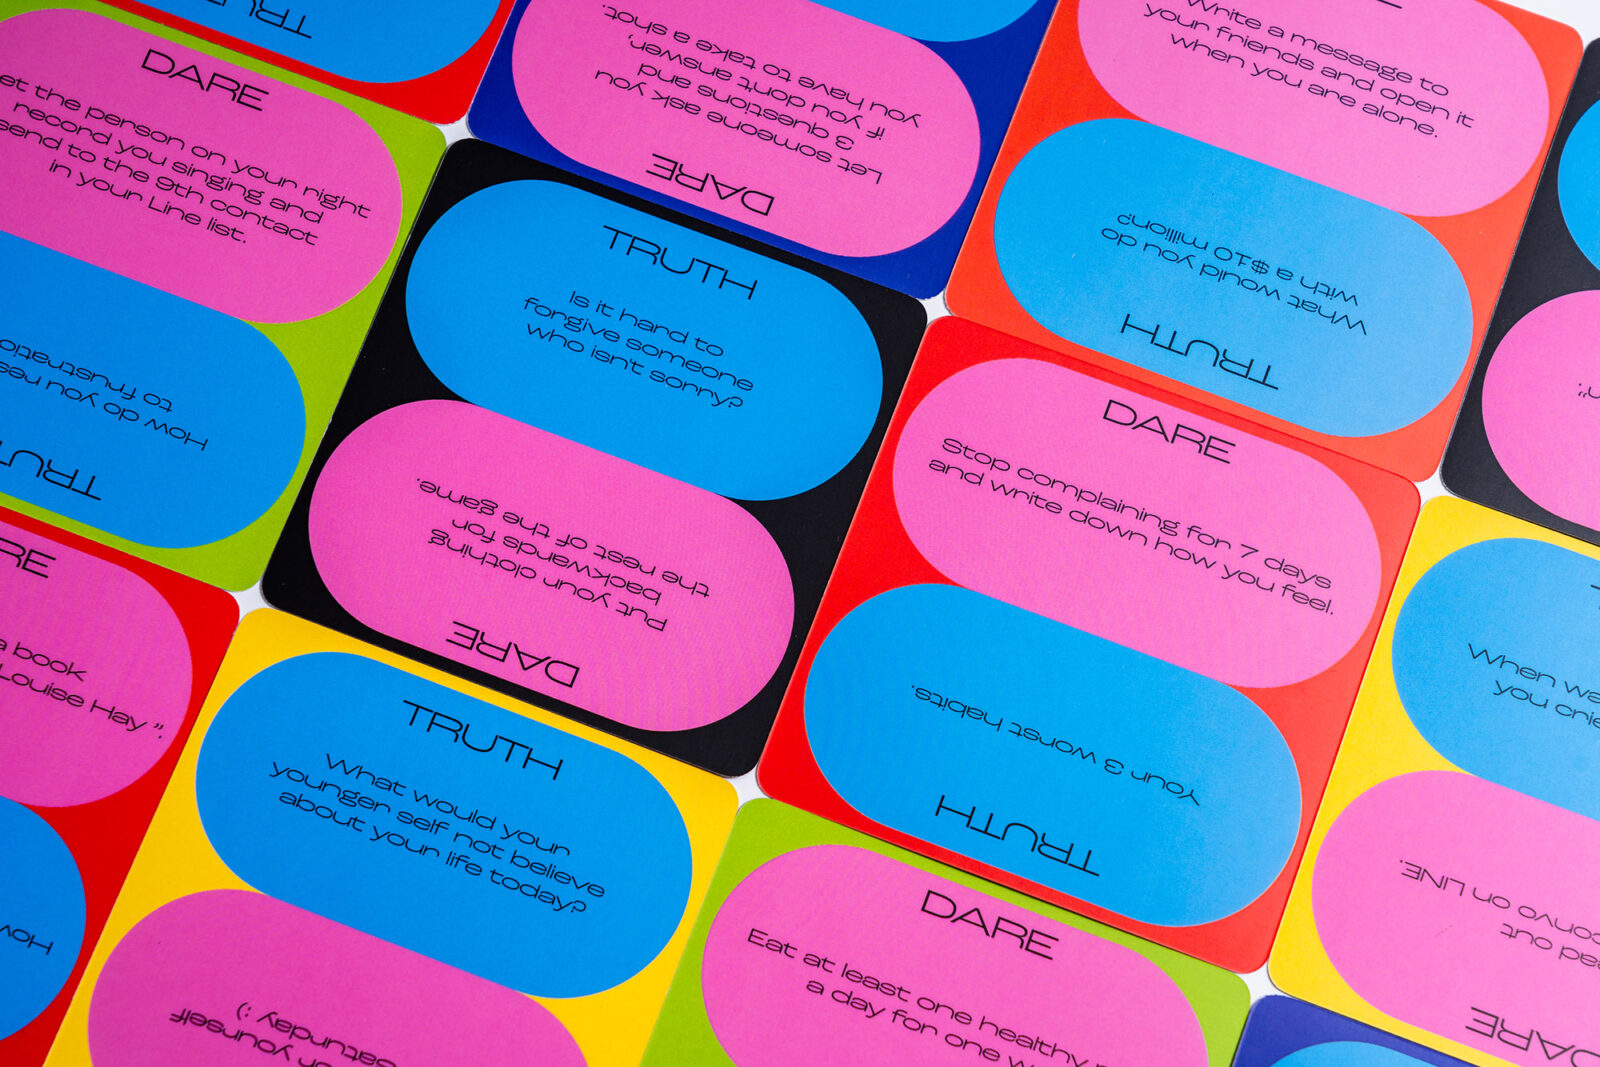 TRUTH
DARE
Let the person on your right
record you singing and
send to the 9th contact
in your Line list.
TRUTH
How do you
to frustration
DARE
Let someone ask you
3 questions and
if you don't answer,
you have to take a shot.
Write a message to
your friends and open it
when you are alone.
TRUTH
What would you do
with a $10 million?
TRUTH
Is it hard to
forgive someone
who isn't sorry?
DARE
Put your clothing
backwards for
the rest of the game.
DARE
Stop complaining for 7 days
and write down how you feel.
TRUTH
Your 3 worst habits.
a book
Louise Hay ”.
How
TRUTH
What would your
younger self not believe
about your life today?
yourself
saturday :)
DARE
Eat at least one healthy
a day for one
When
you
DARE
out
convo on LINE.